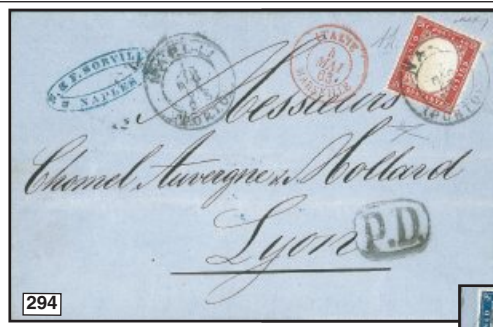 & F. SORVILL
NAPLES
NAPOLI
PORTO
ITALIE
4
MAI
63
MARSEILLE
(PORTO)
Messieurs
Chomel Auvergne & Hollard
Lyon
P.D.
294